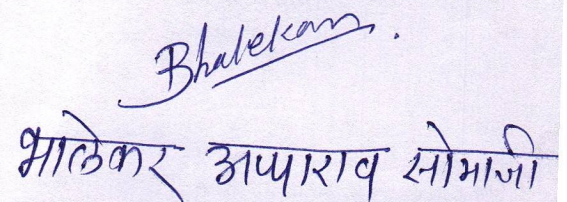 Bhalekar.
भालेकर अप्पाराव सोमाजी